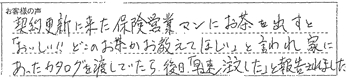 お客様の声
契約更新に来た保険営業マンにお茶を出すと
「おいしい!!どこのお茶かお教えてほしい」と言われ、家に
あったカタログを渡していたら、後日「早速注文した」と報告されました